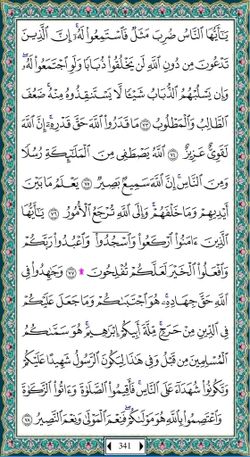 يَٰٓأَيُّهَا ٱلنَّاسُ ضُرِبَ مَثَلٌ فَٱسْتَمِعُوا۟ لَهُۥٓ ۚ إِنَّ ٱلَّذِينَ
تَدْعُونَ مِن دُونِ ٱللَّهِ لَن يَخْلُقُوا۟ ذُبَابًا وَلَوِ ٱجْتَمَعُوا۟ لَهُۥ ۖ
وَإِن يَسْلُبْهُمُ ٱلذُّبَابُ شَيْـًٔا لَّا يَسْتَنقِذُوهُ مِنْهُ ۚ ضَعُفَ
ٱلطَّالِبُ وَٱلْمَطْلُوبُ ٧٣ مَا قَدَرُوا۟ ٱللَّهَ حَقَّ قَدْرِهِۦٓ ۗ إِنَّ ٱللَّهَ
لَقَوِىٌّ عَزِيزٌ ٧٤ ٱللَّهُ يَصْطَفِى مِنَ ٱلْمَلَٰٓئِكَةِ رُسُلًا
وَمِنَ ٱلنَّاسِ ۚ إِنَّ ٱللَّهَ سَمِيعٌۢ بَصِيرٌ ٧٥ يَعْلَمُ مَا بَيْنَ
أَيْدِيهِمْ وَمَا خَلْفَهُمْ ۗ وَإِلَى ٱللَّهِ تُرْجَعُ ٱلْأُمُورُ ٧٦ يَٰٓأَيُّهَا
ٱلَّذِينَ ءَامَنُوا۟ ٱرْكَعُوا۟ وَٱسْجُدُوا۟ وَٱعْبُدُوا۟ رَبَّكُمْ
وَٱفْعَلُوا۟ ٱلْخَيْرَ لَعَلَّكُمْ تُفْلِحُونَ ۩ ٧٧ وَجَٰهِدُوا۟ فِى
ٱللَّهِ حَقَّ جِهَادِهِۦ ۚ هُوَ ٱجْتَبَىٰكُمْ وَمَا جَعَلَ عَلَيْكُمْ
فِى ٱلدِّينِ مِنْ حَرَجٍ ۚ مِّلَّةَ أَبِيكُمْ إِبْرَٰهِيمَ ۚ هُوَ سَمَّىٰكُمُ
ٱلْمُسْلِمِينَ مِن قَبْلُ وَفِى هَٰذَا لِيَكُونَ ٱلرَّسُولُ شَهِيدًا عَلَيْكُمْ
وَتَكُونُوا۟ شُهَدَآءَ عَلَى ٱلنَّاسِ ۚ فَأَقِيمُوا۟ ٱلصَّلَوٰةَ وَءَاتُوا۟ ٱلزَّكَوٰةَ
وَٱعْتَصِمُوا۟ بِٱللَّهِ هُوَ مَوْلَىٰكُمْ ۖ فَنِعْمَ ٱلْمَوْلَىٰ وَنِعْمَ ٱلنَّصِيرُ ٧٨
341